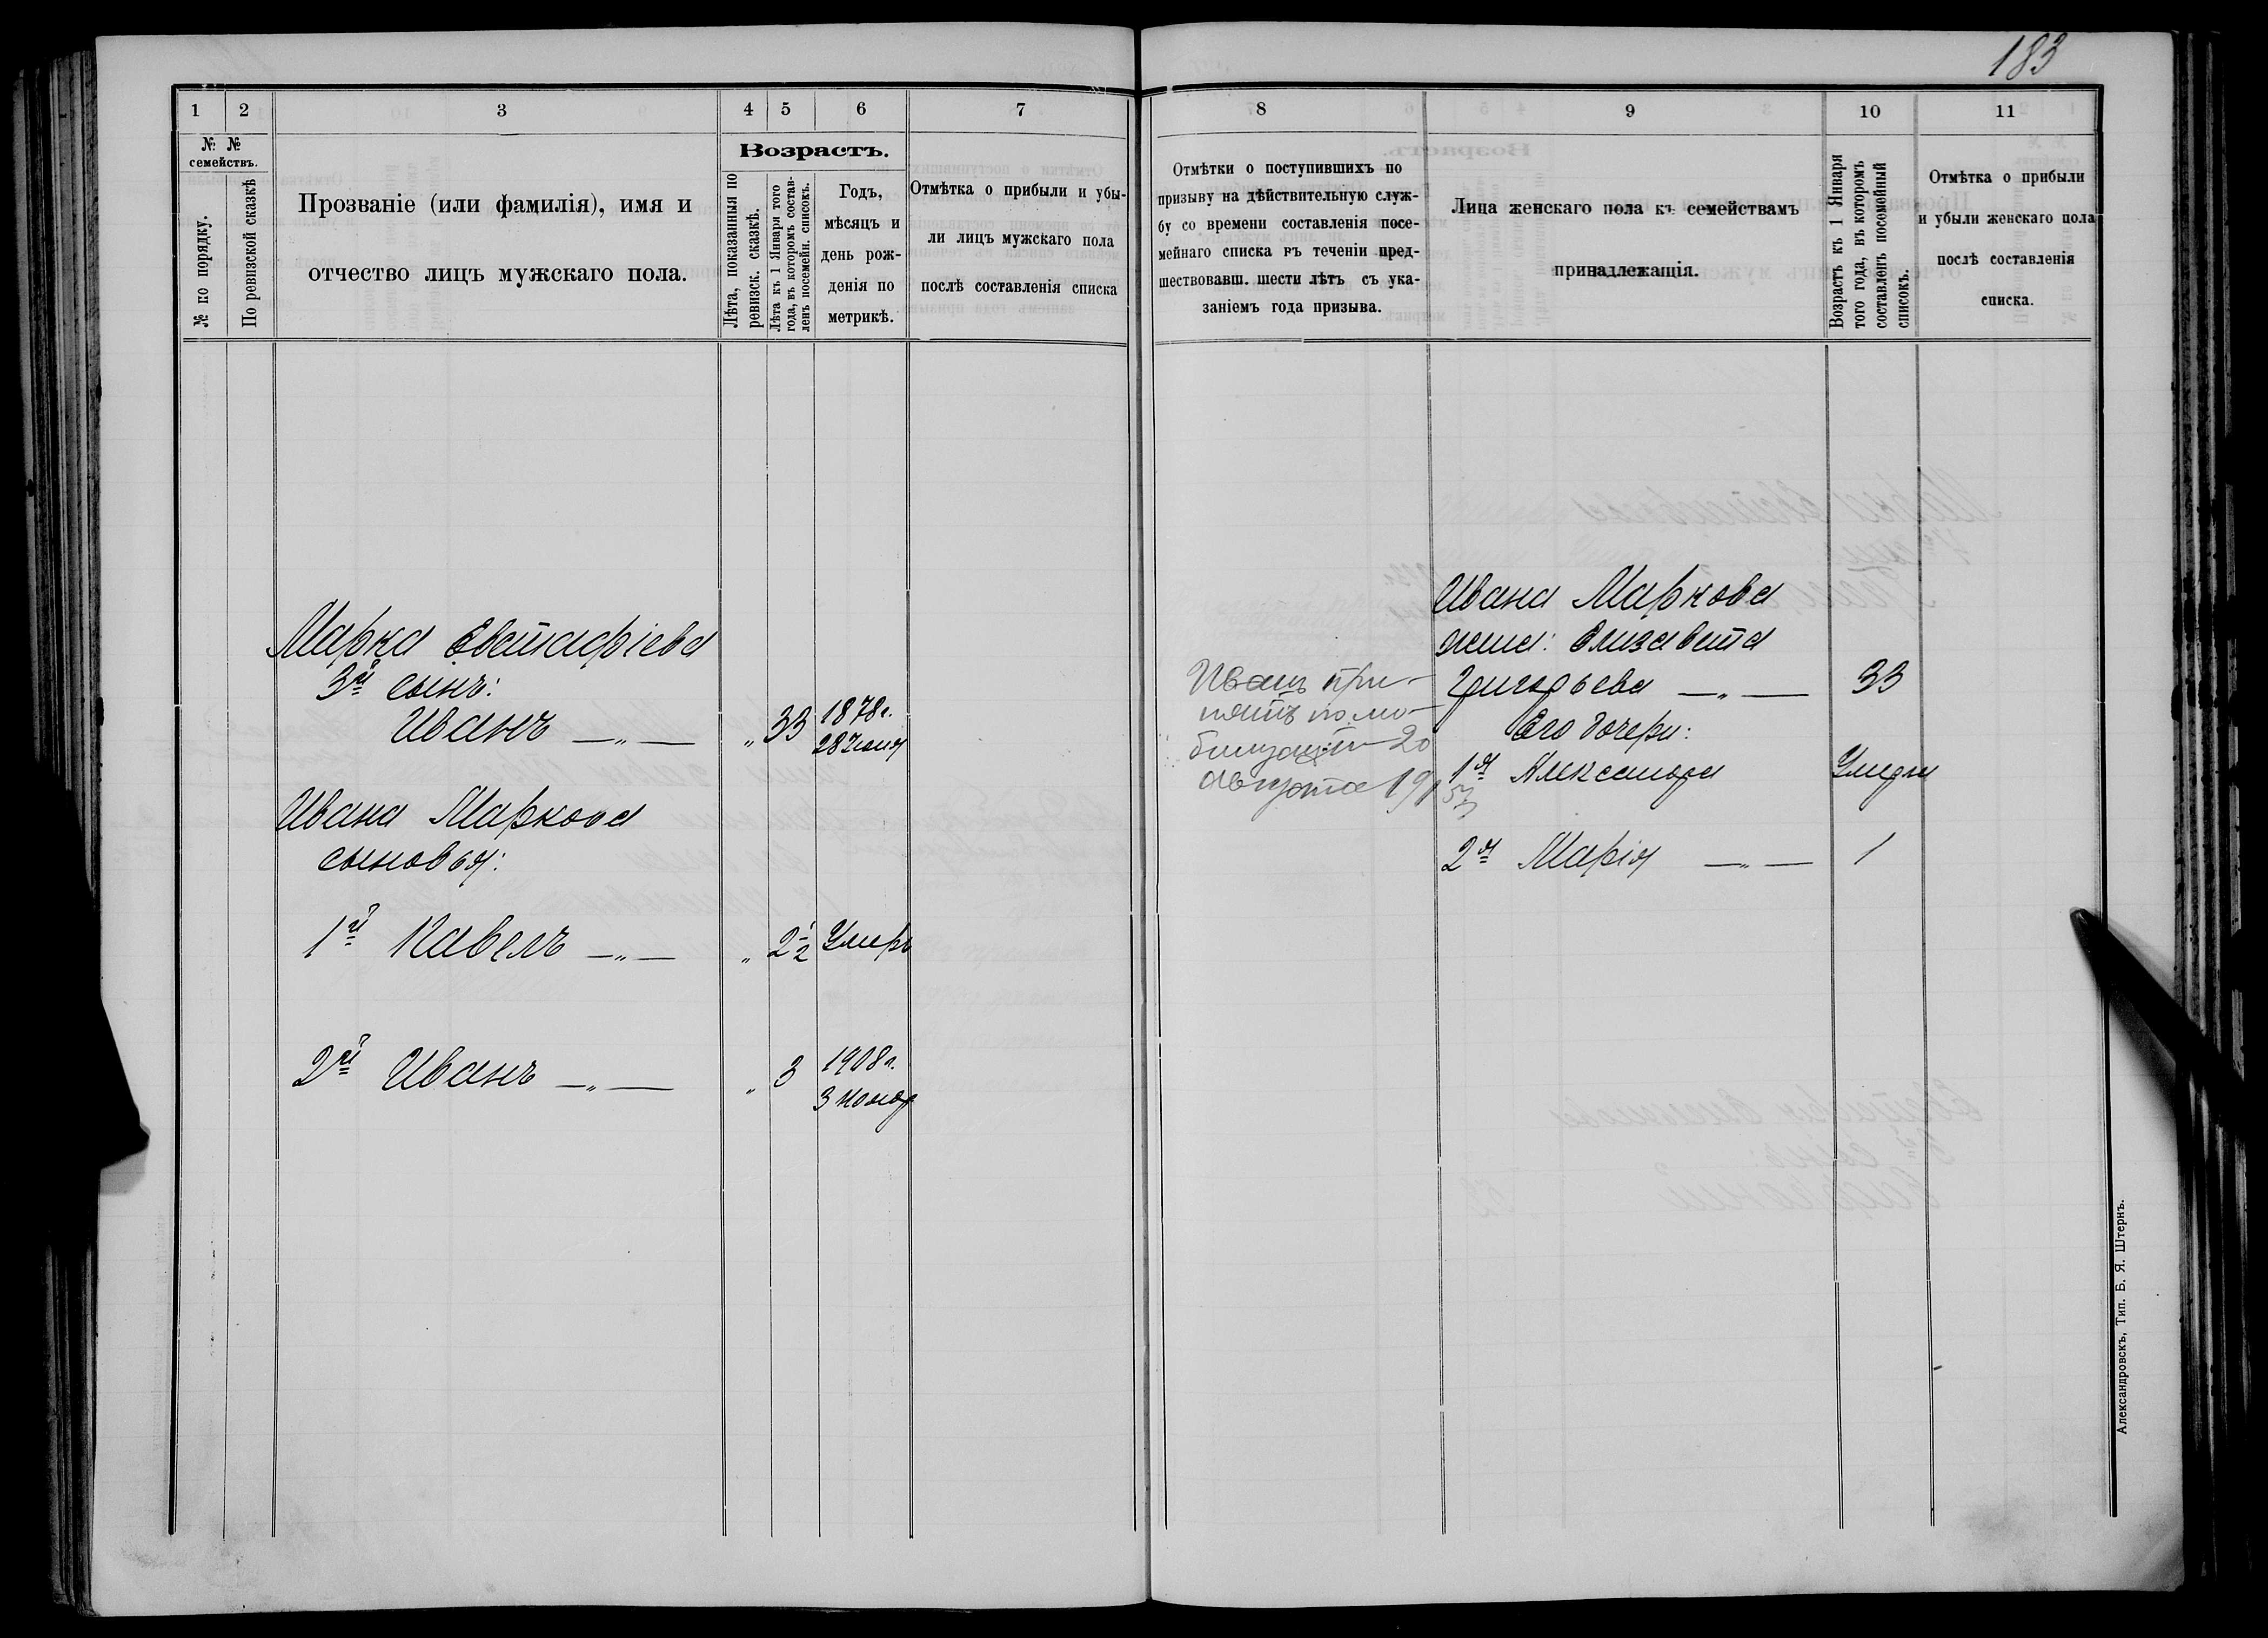 183
1 2 3 4 5 6 7
№ № семействъ.
№ по порядку.
По ревизской сказкѣ
Прозваніе (или фамилія), имя и
отчество лицъ мужскаго пола.
Возрастъ.
Лѣта, показанныя по
ревизск. сказкѣ.
Лѣта къ 1 Января того
года, въ которомъ состав-
ленъ посемейн. списокъ.
Годъ,
мѣсяцъ и
день рож-
денія по
метрикѣ.
Отмѣтка о прибыли и убы-
ли лицъ мужскаго пола
послѣ составленія списка
Марка Евстафіева
3й сынъ:
Иванъ —„— „ 33 1878 г.
28 Іюня
Ивана Маркова
сыновья:
1й Павелъ —„— „ 2½ Умеръ
2й Иванъ —„— „ 3 1908 г.
3 Нояб
8 9 10 11
Отмѣтки о поступившихъ по
призыву на дѣйствительную служ-
бу со времени составленія посе-
мейнаго списка въ теченіи пред-
шествовавш. шести лѣтъ съ ука-
заніемъ года призыва.
Лица женскаго пола къ семействамъ
принадлежащія.
Возрастъ къ 1 Января
того года, въ которомъ
составленъ посемейный
списокъ.
Отмѣтка о прибыли
и убыли женскаго пола
послѣ составленія
списка.
Иванъ при-
нятъ по мо-
билизаціи 20
августа 191
5
Ивана Маркова
жена: Елизавета
Григорьева —„— 33
Его дочери:
1я Александра Умерла
2я Марія —„— 1
Александровскъ, Тип. Б. Я. Штернъ.